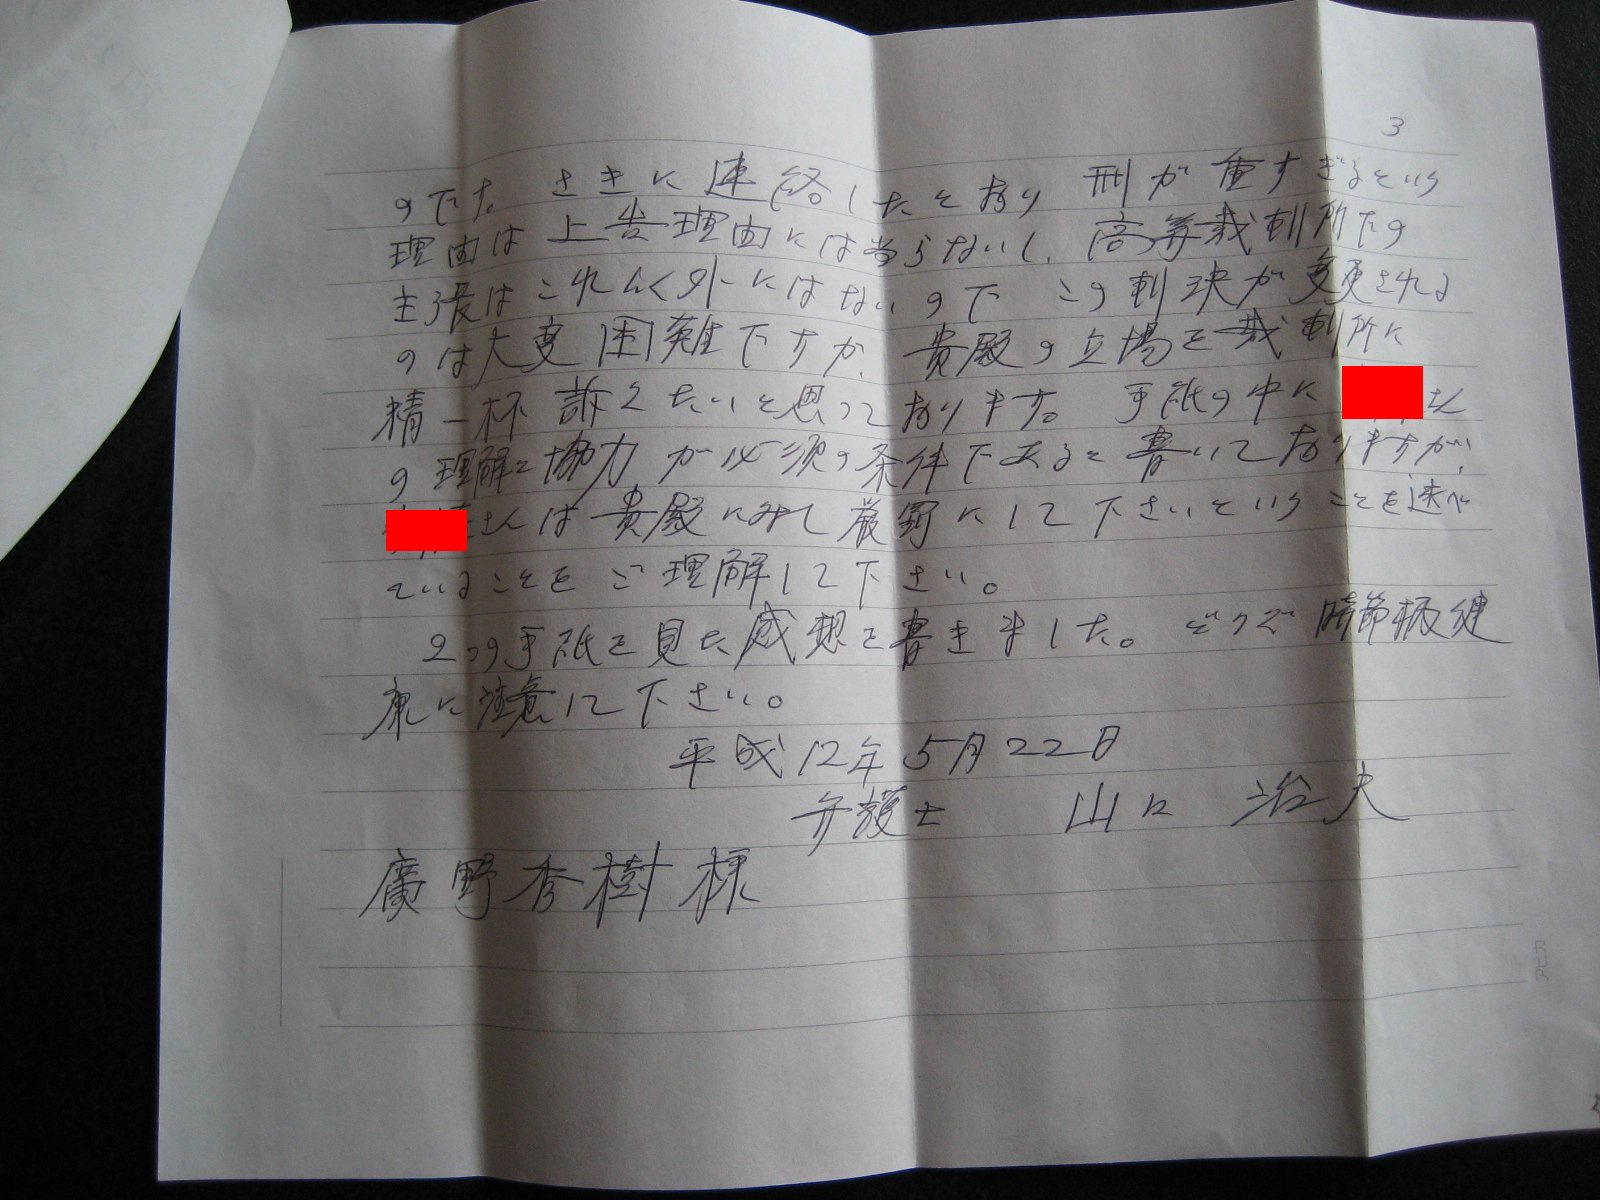 3
のです。さきに連絡したとおり 刑が重すぎるという
理由は上告理由には当らないし、高等裁判所での
主張はこれ以外にはないので この判決が変更される
のは大変困難ですが、貴殿の立場を裁判所に
精一杯訴えたいと思っております。手紙の中に さん
の理解と協力が必須の条件であると書いておりますが、
さんは貴殿に対して厳罰にして下さいということを述べ
ていることをご理解して下さい。
2つの手紙を見た感想を書きました。どうぞ時節柄健
康に注意して下さい。
平成12年5月22日
弁護士 山口 治夫
廣野秀樹様